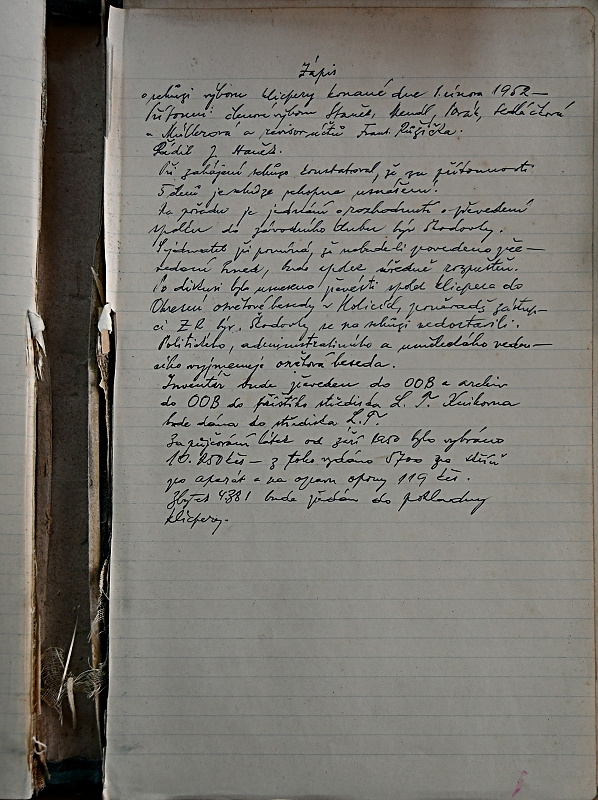 Zápis
o schůzi výboru Klicpery konané dne 1. února 1952 –
Přítomni členové výboru Staněk, Sedláčková
a Müllerová a revisor účtů Frant. Růžička.
Řídil J. Staněk.
Při zahájení schůze konstatoval, že za přítomnosti
5 členů je schůze schopna usnášení.
Na pořadu je jednání o rozhodnutí o převedení
spolku do závodního klubu býv. Škodovky.
Vyjednavatel při pomíná, že nebude-li provedeno pře–
vedení ihned, bude spolek úředně rozpuštěn.
Po diskusi bylo usneseno převésti spolek Klicpera do
Okresní osvětové besedy v Holicích, poněvadž zástup–
ci Z.K. býv. Škodovky se na schůzi nedostavili.
Politického, administrativního a uměleckého vedou–
cího vyjmenuje osvětová beseda.
Inventář bude převeden do OOB a archiv
do OOB do příštího střediska L. T. Knihovna
bude dána do střediska L.T.
Za půjčování látek od září 1950 bylo vybráno
10.250 Kčs – z toho vydáno 5700 za
pro aparát a na opravu opony 119 Kčs.
Zbytek 4381 bude předán do pokladny
Klicpery.